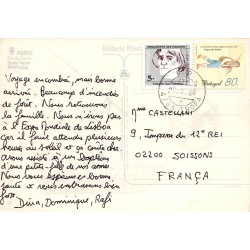 PORTO
Bilhete Postal
Voyage encombré, mais bonne
arrivée. Beaucoup d'incendies
de forêt. Nous retrouvons
la famille. Nous n'irons pas
à l'Expo Mondiale de Lisboa
car il faut attendre plusieurs
heures au soleil et ça coûte cher.
avons assisté à un baptême
d'une petite-fille de nos
Nous vous espérons en bonne
santé et nous embrassons bien
fort.
Dina, Dominique, Rafi
5
Portugal 80.
Mme CASTELLANI
9, Impasse du 12e REI
02200 SOISSONS
FRANÇA